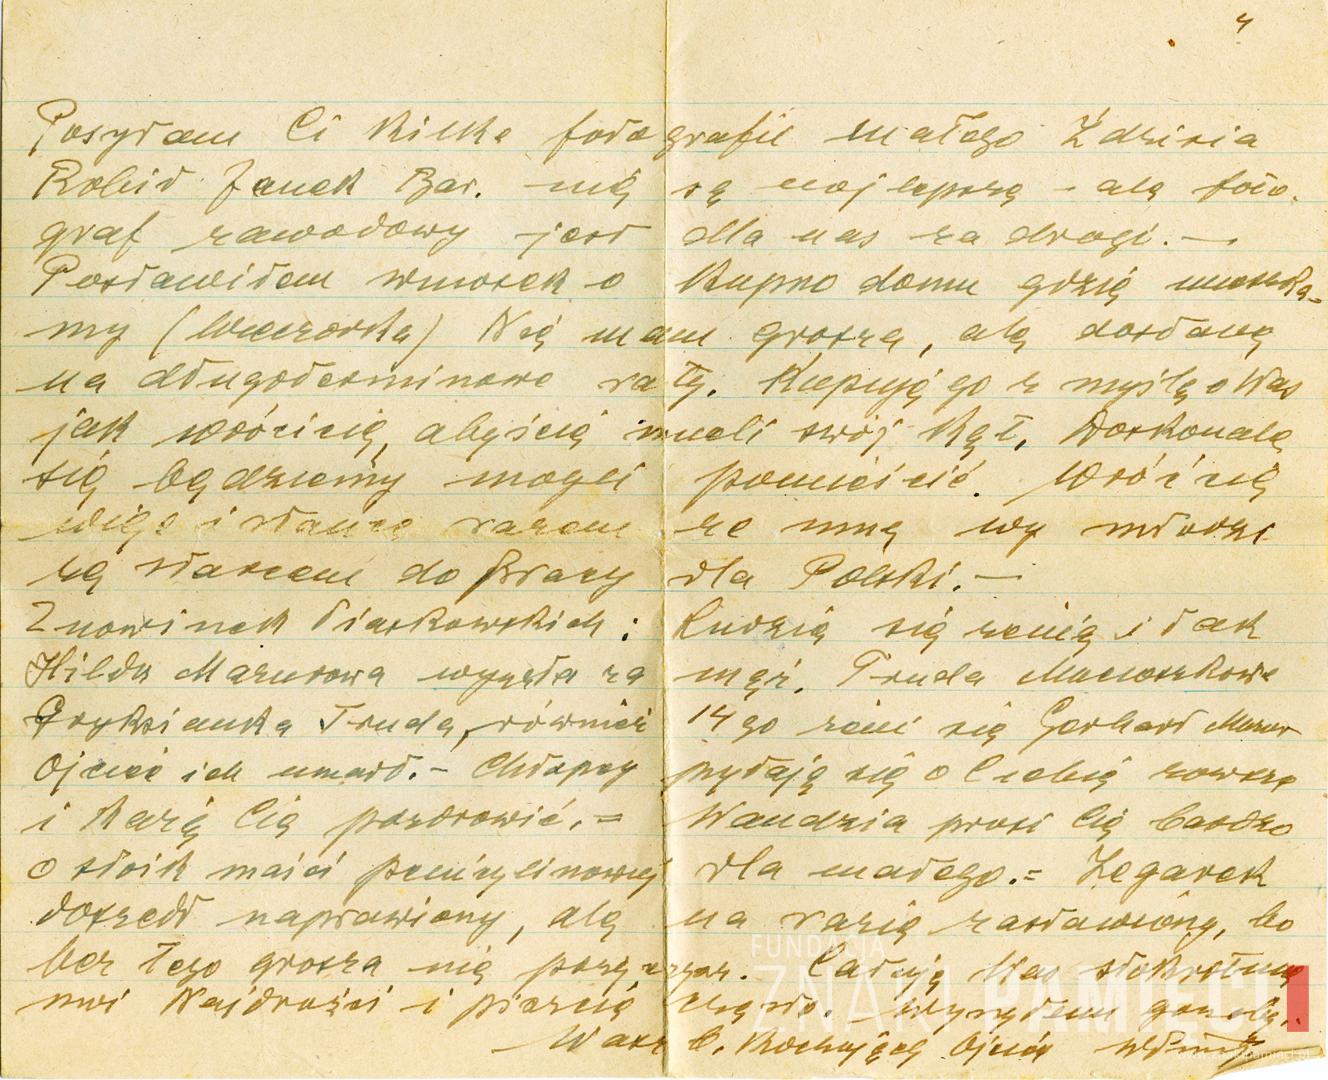 4
Posyłam Ci kilka fotografii małego Zdzisia
Robił Janek Bar. nię są najlepszę - alę foto-
graf zawodowy jest dla nas za drogi. —
Postawiłem wniosek o kupno domu gdzię mieszka-
my (Wieczorka) Nię mam grosza, alę dostanę
na długoterminowe raty. Kupuję go z myślą o Was
jak wrócicię, abyścię mieli swój kąt, Doskonalę
się będziemy mogli pomieścić. Wróćcię
więc i stańcę razem ze mną wy młodzi
zę starszem do pracy dla Polski. —
Z nowinek Piaskowskich: Ludzię się żenią i tak
Hilda Mazurowa wyszła za mąż, Truda
Truda, również 14go żeni się Gerhard Mazur
Ojciec ich umarł. - Chłopcy pytają się o Ciebię zawsze
i każą Cię pozdrowić. = Wandzia prosi Cię bardzo
o słoik maści penicylinowej dla małego. = Zegarek
dostałem naprawiony, alę na razię zastawiony, bo
bez tego grosza nię pożyczysz. Całuję Was stokrotnię
moi Najdrożsi i piszcię często. Wysyłam gazetę.
Wasz B. Kochający Ojciec
FUNDACJA
ZNAKI PAMIĘCI